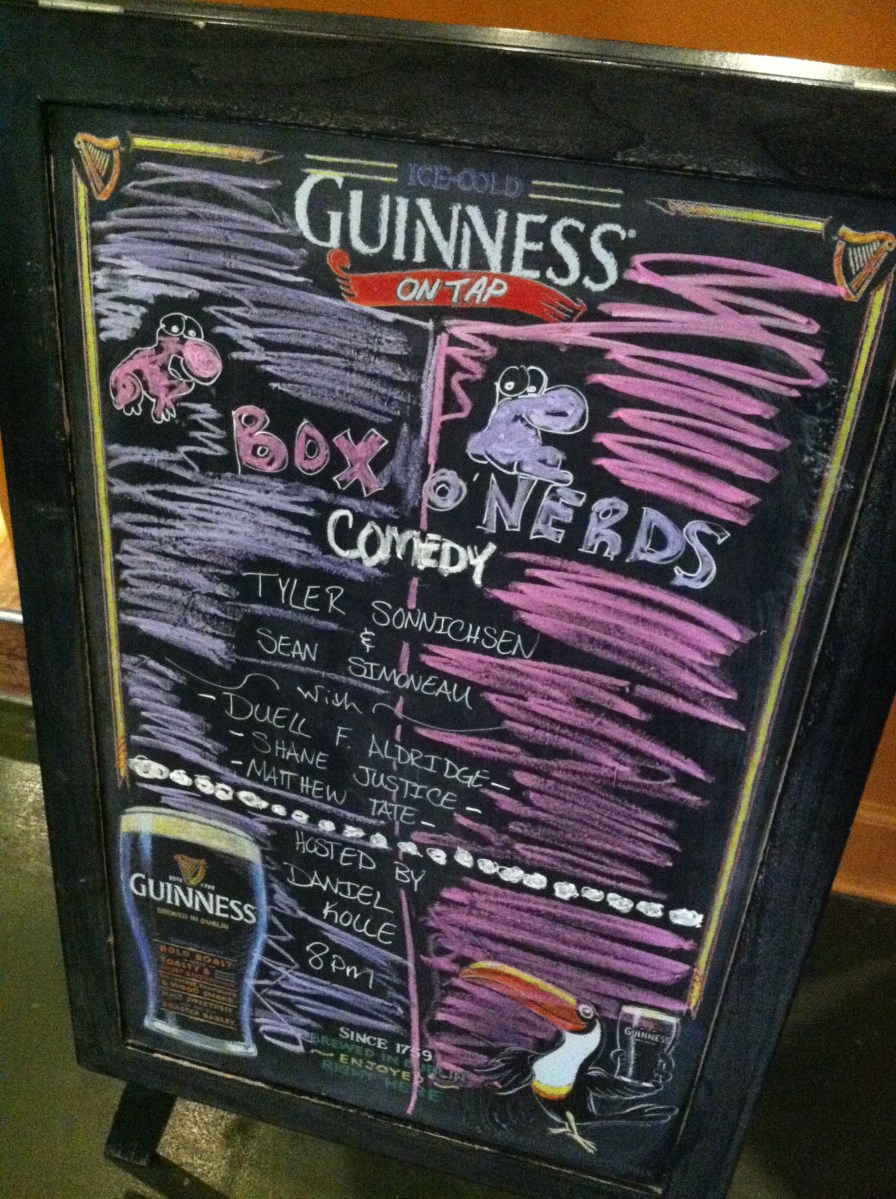 ICE-COLD
GUINNESS®
ON TAP
BOX O'NERDS
COMEDY
TYLER SONNICHSEN
&
SEAN SIMONEAU
with
- DUELL F. ALDRIDGE -
- SHANE JUSTICE -
- MATTHEW TATE -
HOSTED BY
DANIEL
KOLLE
8pm
ESTD 1759
GUINNESS
BREWED IN DUBLIN
BOLD ROAST
TOASTY &
ROASTED BARLEY
GUINNESS
SINCE 1759
BREWED IN DUBLIN
ENJOYED
RIGHT HERE